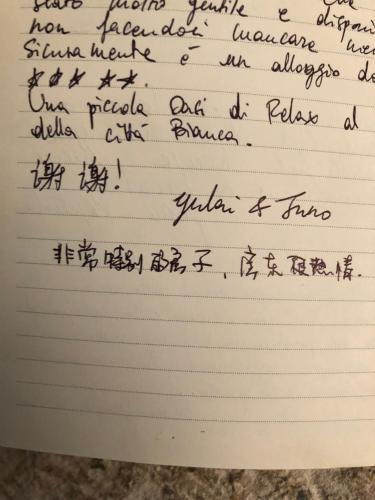 stato molto gentile e disponi
non facendoci mancare
Sicuramente è un alloggio da
★★★ ★★.
Una piccola Oasi di Relax al
della città Bianca.
谢谢!
Yulai & Juno
非常特别的房子，房东很热情.